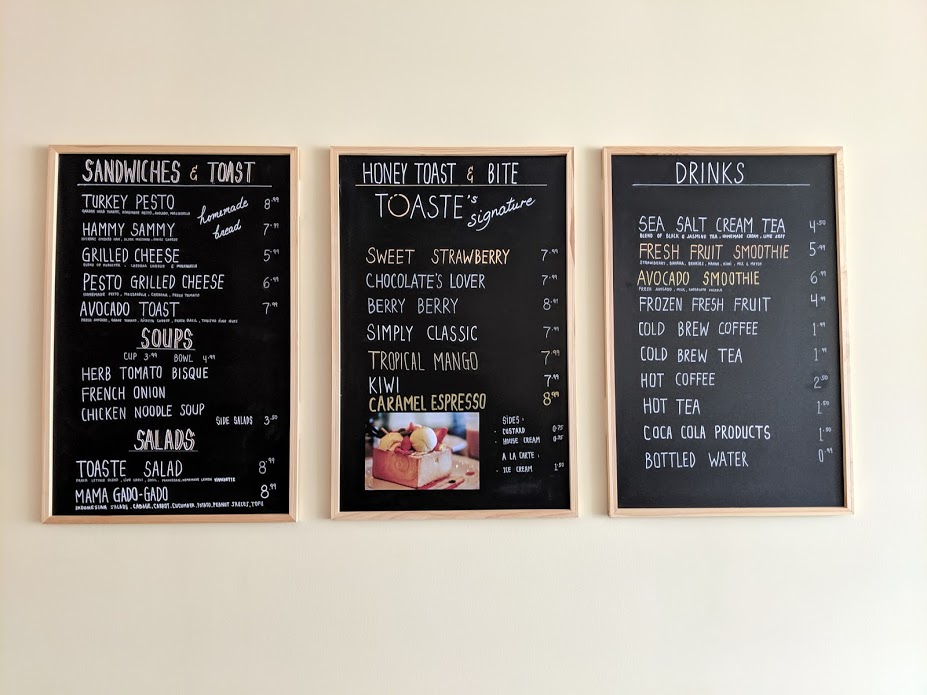 SANDWICHES & TOAST
TURKEY PESTO 8.99
homemade bread
HAMMY SAMMY 7.99
GRILLED CHEESE 5.99
PESTO GRILLED CHEESE 6.99
AVOCADO TOAST 7.99
SOUPS
CUP 3.99 BOWL 4.99
HERB TOMATO BISQUE
FRENCH ONION
CHICKEN NOODLE SOUP
SIDE SALADS 3.50
SALADS
TOASTE SALAD 8.99
MAMA GADO-GADO 8.99
INDONESIAN SALAD, CABBAGE, CARROT, CUCUMBER, POTATO, PEANUT SAUCE, TOFU
HONEY TOAST & BITE
TOASTE's signature
SWEET STRAWBERRY 7.99
CHOCOLATE'S LOVER 7.99
BERRY BERRY 8.99
SIMPLY CLASSIC 7.99
TROPICAL MANGO 7.99
KIWI 7.99
CARAMEL ESPRESSO 8.99
SIDES:
- CUSTARD 0.75
- HOUSE CREAM 0.75
A LA CARTE:
- ICE CREAM 1.50
DRINKS
SEA SALT CREAM TEA 4.50
BLEND OF BLACK & JASMINE TEA, HOMEMADE CREAM, LIME ZEST
FRESH FRUIT SMOOTHIE 5.99
AVOCADO SMOOTHIE 6.99
FROZEN FRESH FRUIT 4.99
COLD BREW COFFEE 1.99
COLD BREW TEA 1.99
HOT COFFEE 2.50
HOT TEA 1.50
COCA COLA PRODUCTS 1.50
BOTTLED WATER 0.99